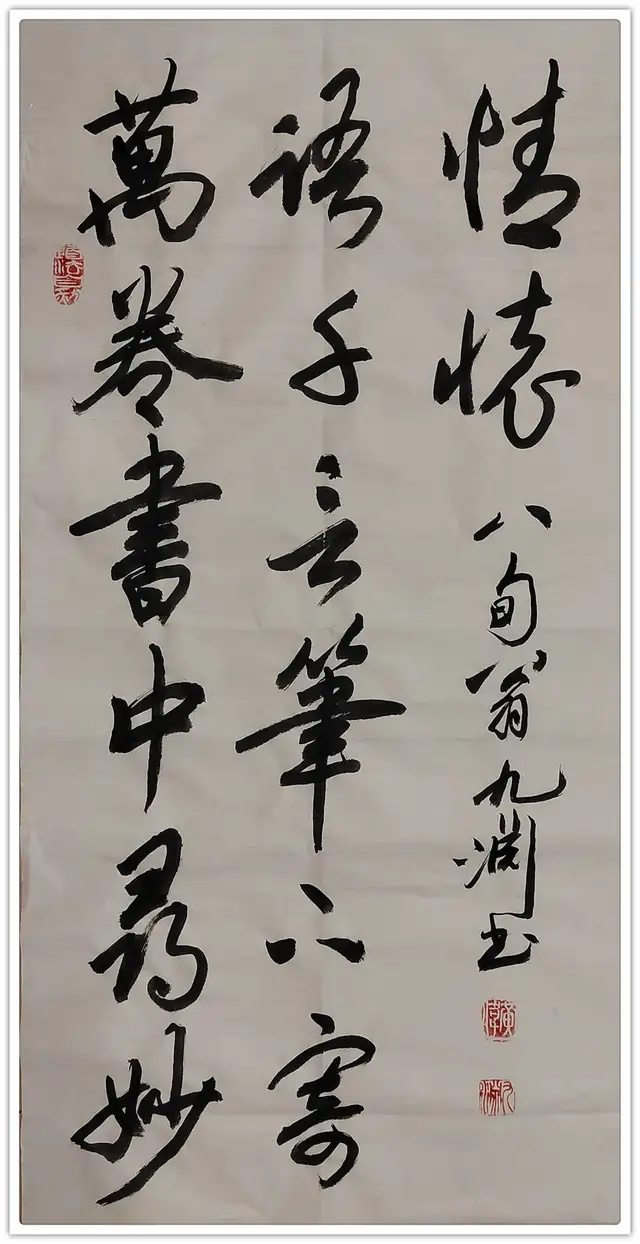 萬卷書中尋妙
語千言筆下寄
情懷
八旬翁九渊书